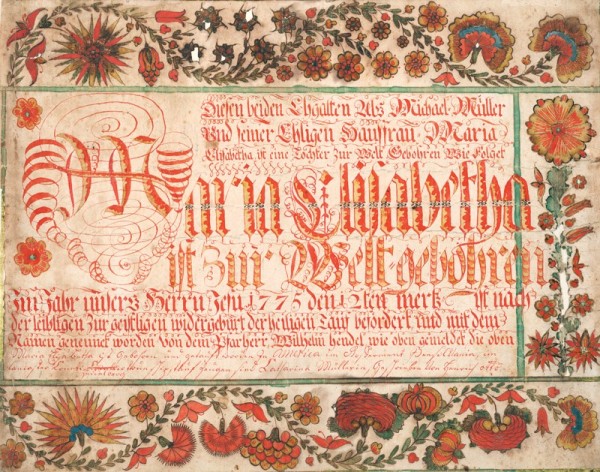 Diesen beiden Ehgalten Als Michael Müller
Und seiner Ehligen Haussfrau Maria
Elisabetha ist eine Tochter Zur Welt Gebohren Wie Folget
Maria Elisabetha
ist Zur Welt gebohren
Im Jahr unsers Herrn Jesu 1775 den 12ten mertz ist nach
der leiblichen Zur geistligen widergeburt der heiligen Tauf befördert und mit dem
Namen genennet worden von dem Pfarherr Wilhelm hendel wie oben gemeldet die oben
Maria Elisabetha ist Gebohren und getauft worden in America in